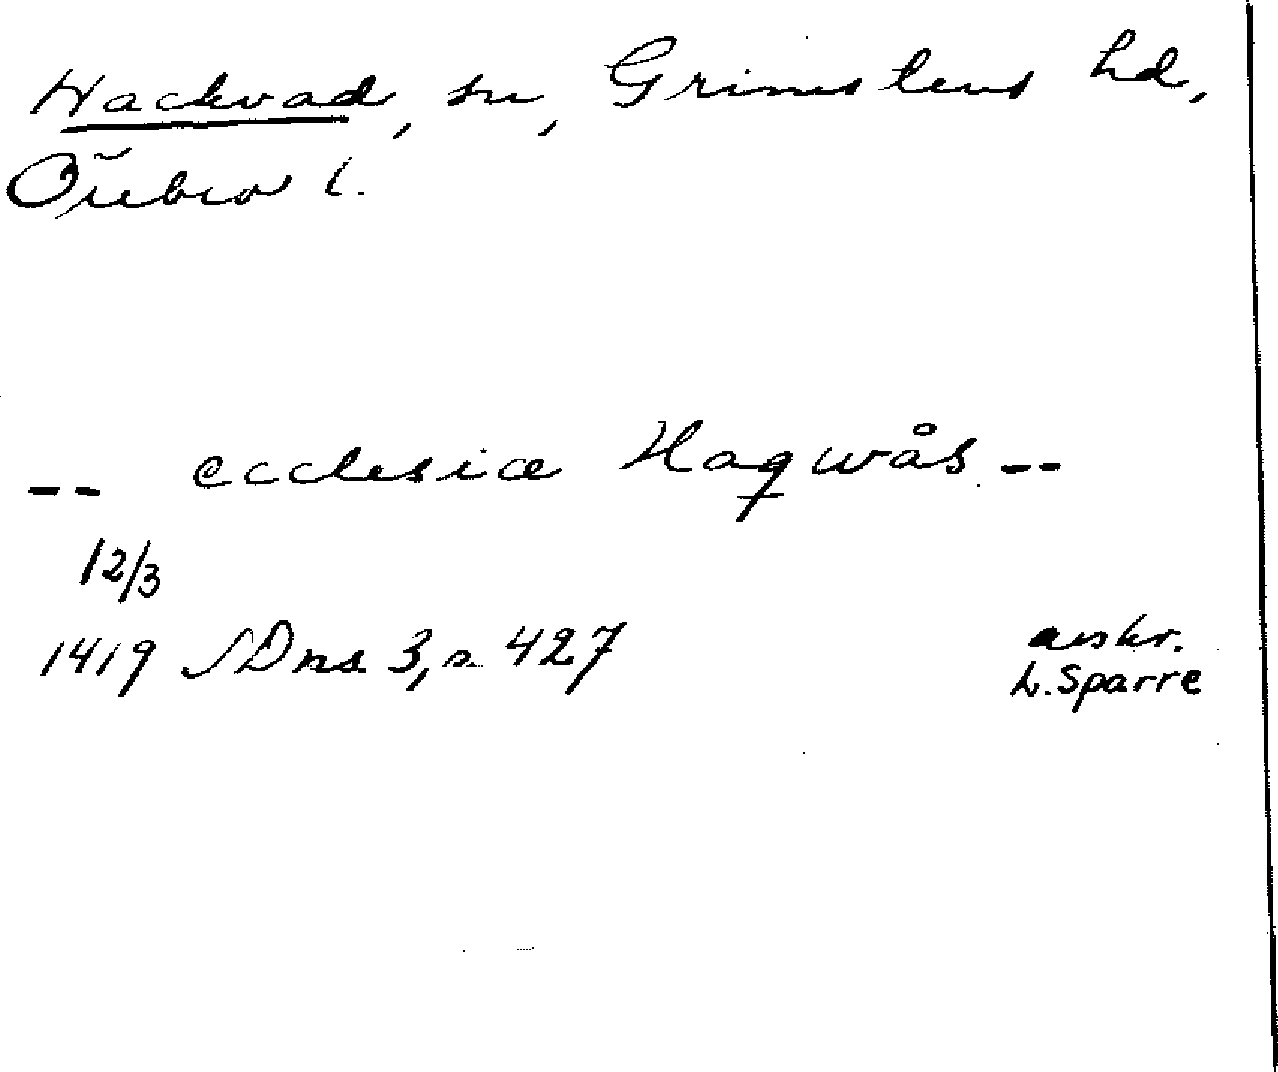 Hackvad, sn, Grimstens hd,
Örebro l.
-- ecclesiæ Hagwås --
12/3
1419 SDns 3, s 427
avskr.
L. Sparre